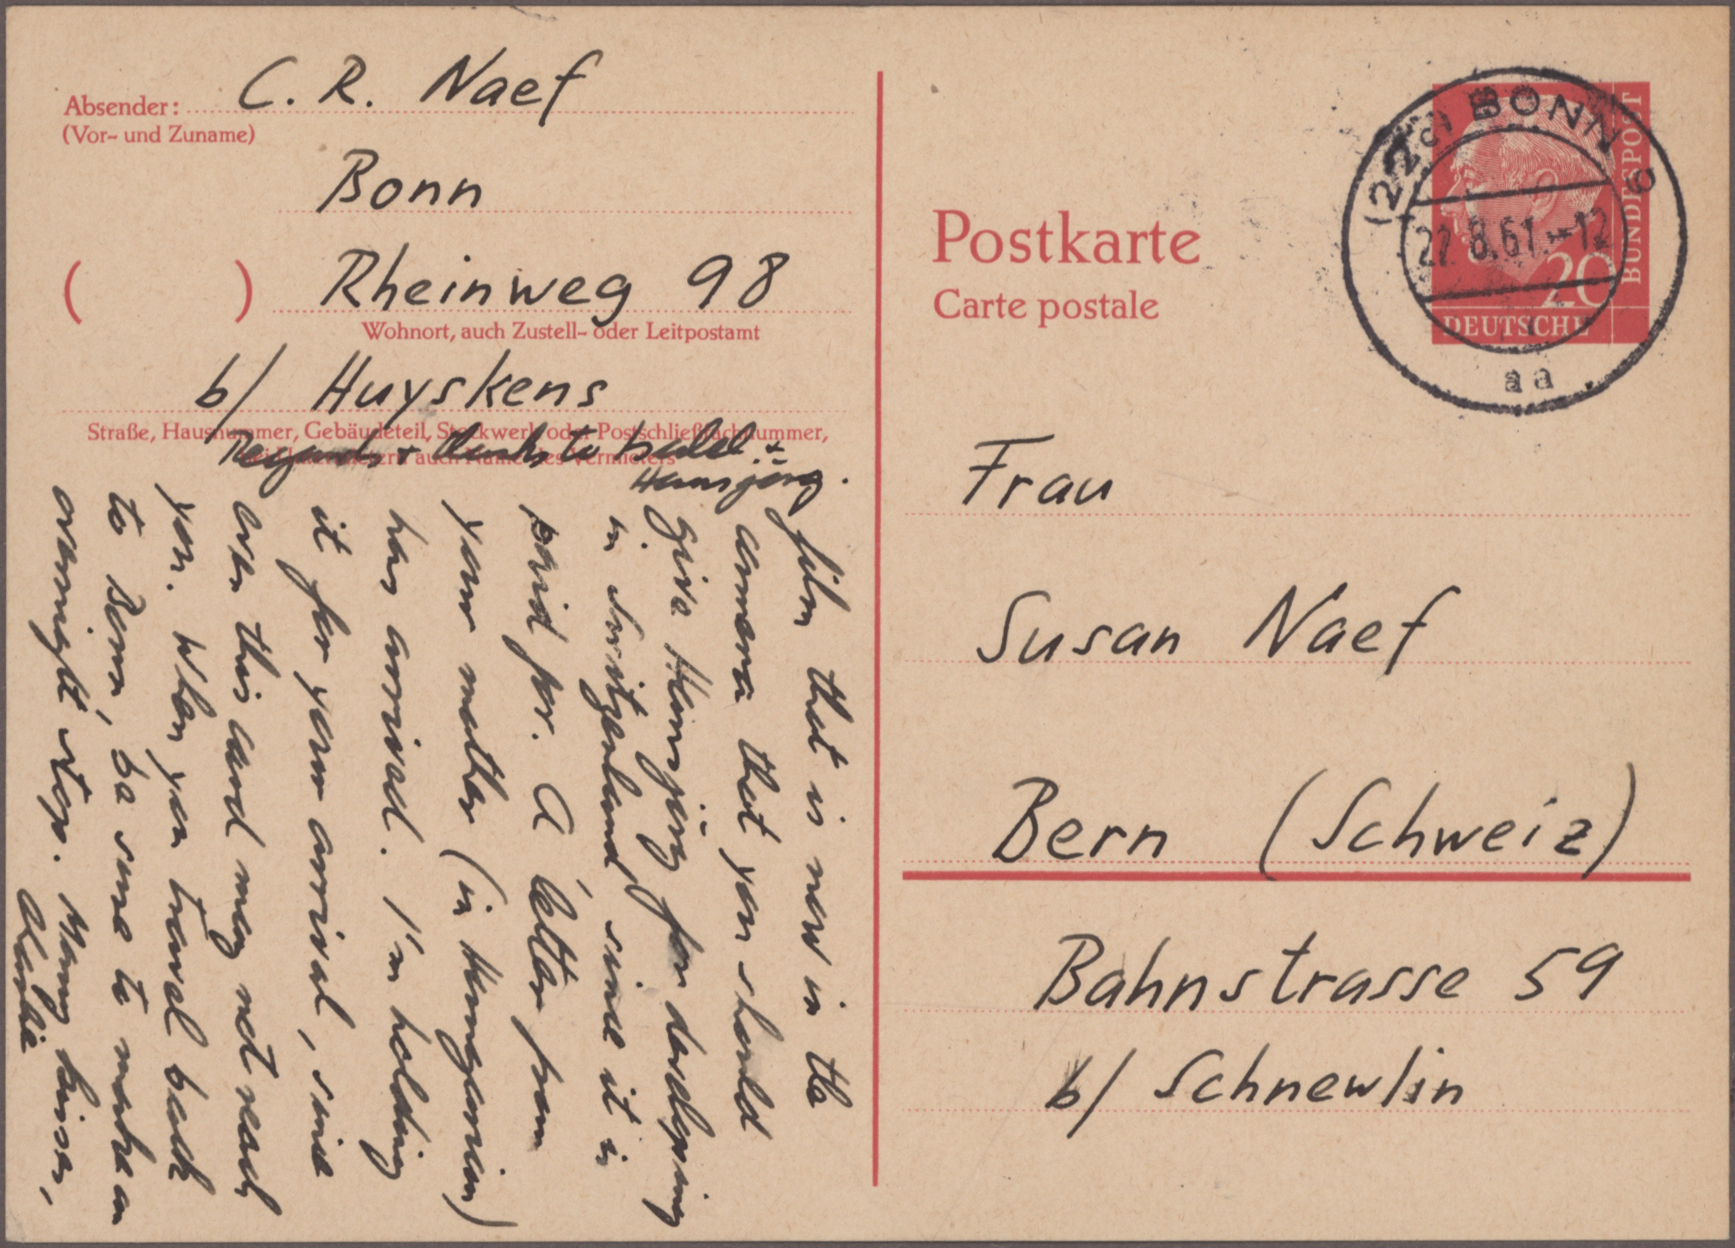 Absender: C. R. Naef
(Vor- und Zuname)
Bonn
( ) Rheinweg 98
Wohnort, auch Zustell- oder Leitpostamt
b/ Huyskens
Straße, Hausnummer, Gebäudeteil, Stockwerk oder Postschließfachnummer,
auch Name des Vermieters
Regards + thanks to +
Hansjörg.
film that is now in the
camera that you should
give Hansjörg for developing
in Switzerland, since it is
paid for. A letter from
your mother (in Hungarian)
has arrived. I'm holding
it for your arrival, since
even this card may not reach
you. When you travel back
to Bonn, be sure to make an
overnight stop. Many kisses,
Charlie
Postkarte
Carte postale
(22c) BONN 6
22.8.61.-12
aa
20
DEUTSCHE
BUNDESPOST
Frau
Susan Naef
Bern (Schweiz)
Bahnstrasse 59
b/ Schnewlin